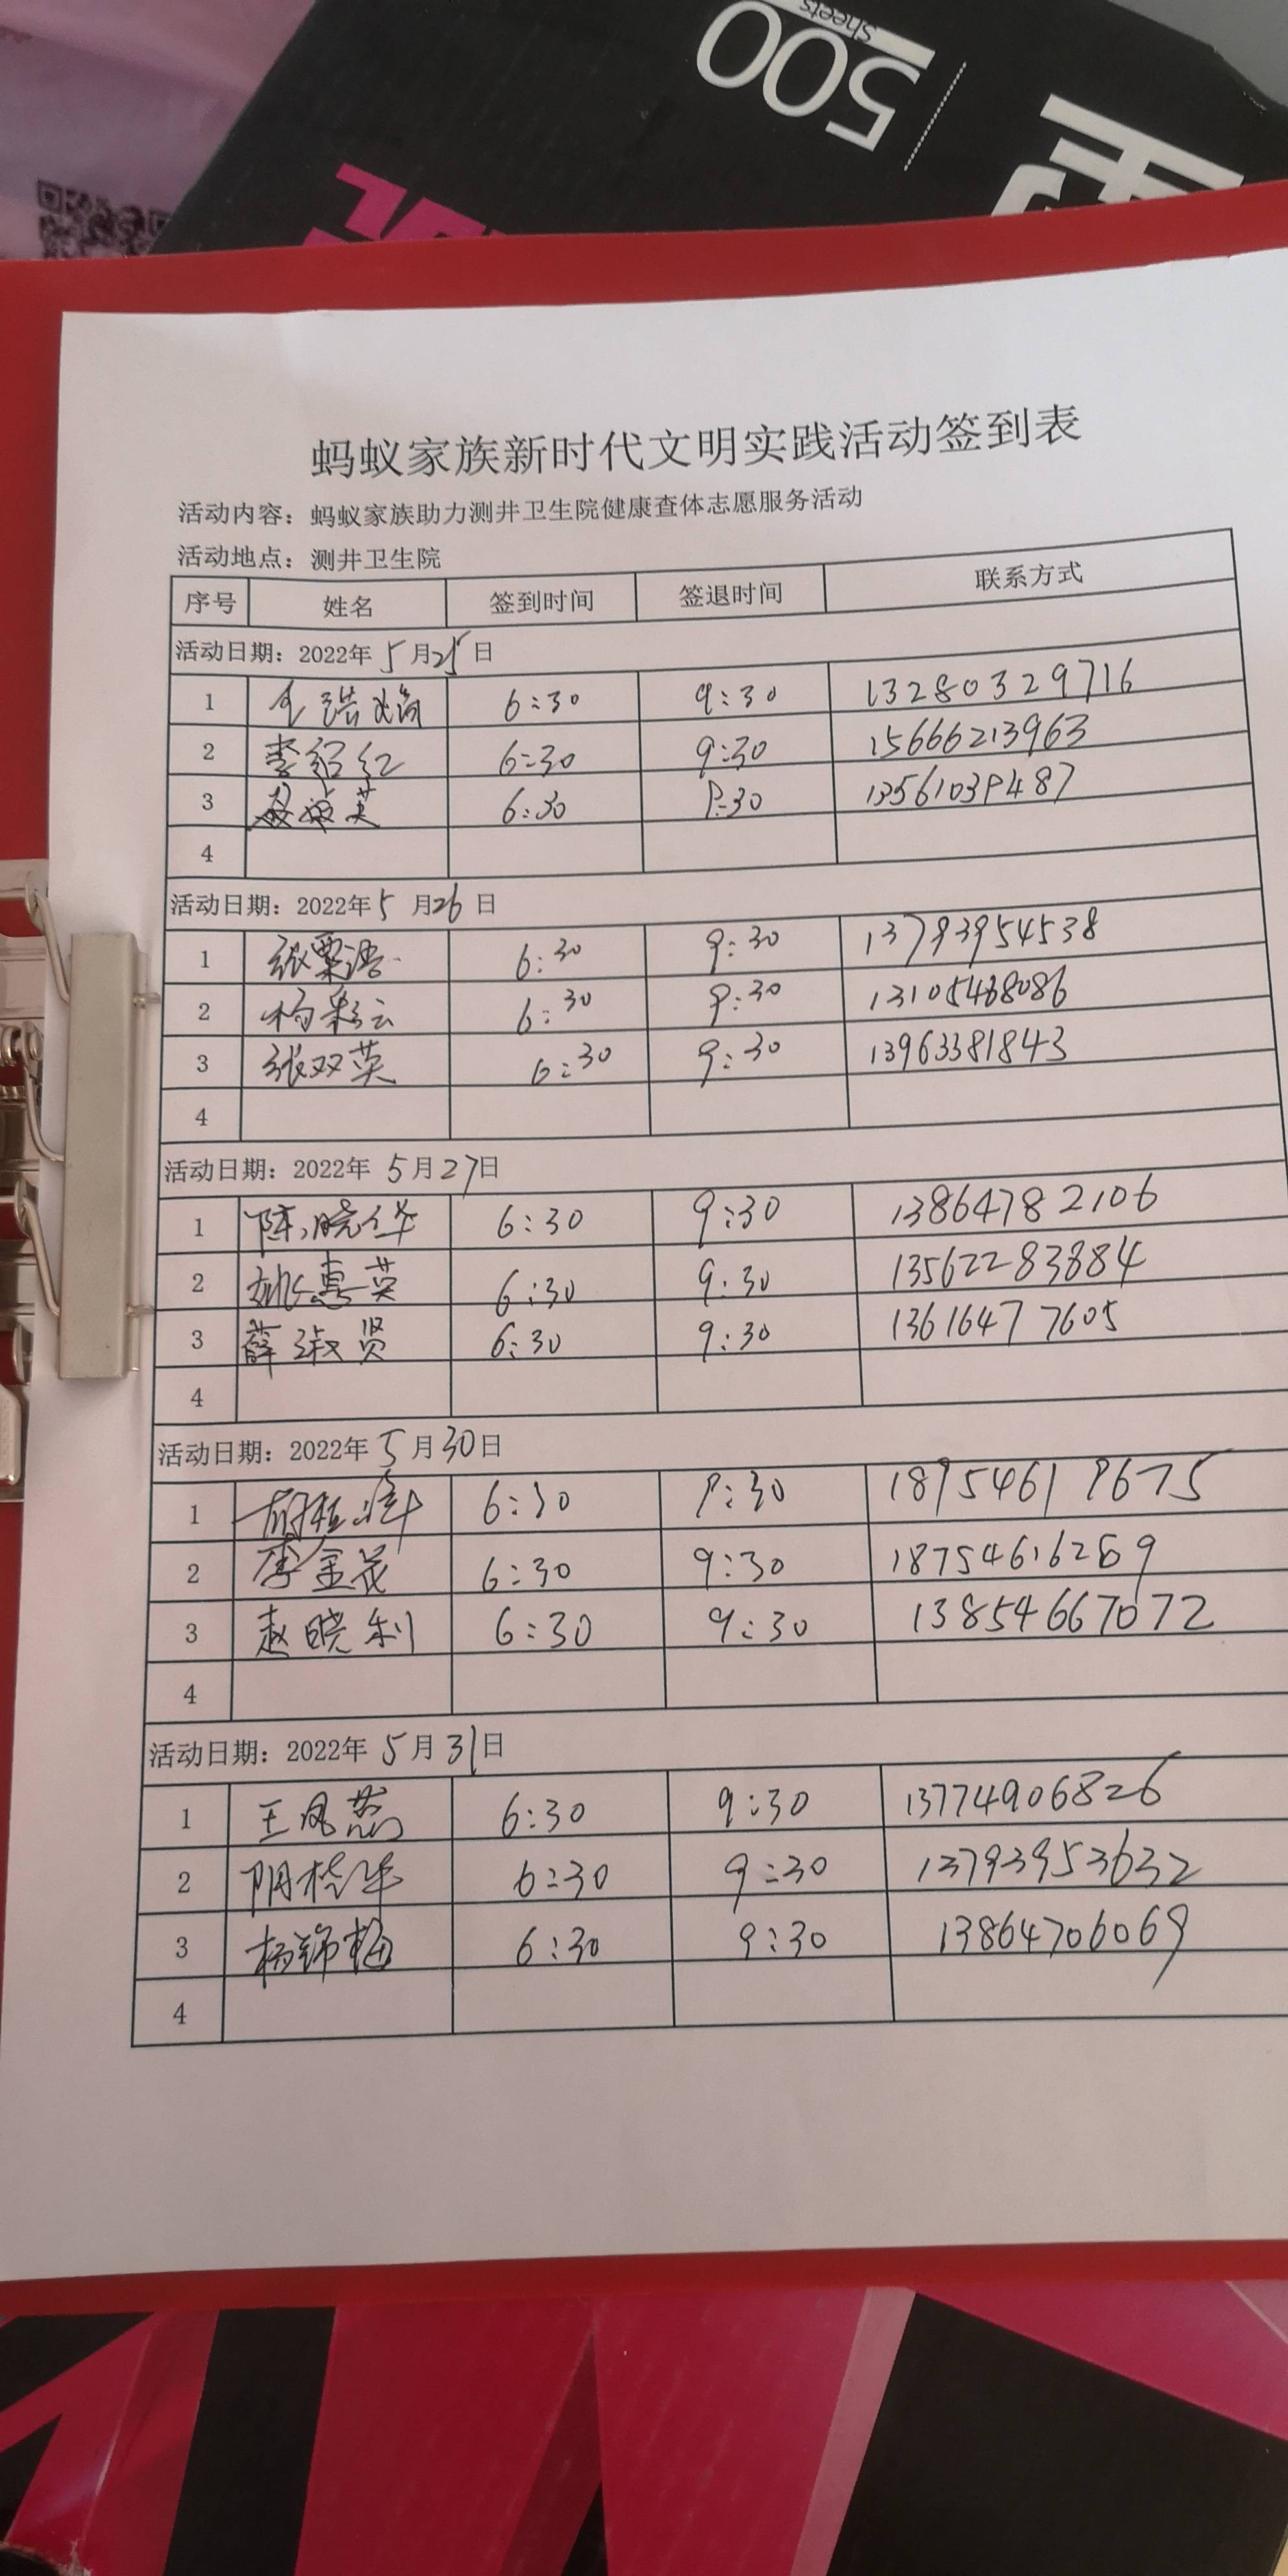 Sheets
500
蚂蚁家族新时代文明实践活动签到表
活动内容：蚂蚁家族助力测井卫生院健康查体志愿服务活动
活动地点：测井卫生院
序号 姓名 签到时间 签退时间 联系方式
活动日期：2022年5月25日
1 6:30 9:30 13280329716
2 李绍红 6:30 9:30 15666213963
3 6:30 9:30 13561039487
4
活动日期：2022年5月26日
1 张粟涛 6:30 9:30 13793954538
2 杨彩云 6:30 9:30 13105468086
3 张双英 6:30 9:30 13963381843
4
活动日期：2022年5月27日
1 陈晓华 6:30 9:30 13864782106
2 姚惠英 6:30 9:30 13562283884
3 薛淑贤 6:30 9:30 13616477605
4
活动日期：2022年5月30日
1 6:30 9:30 18954619675
2 李金花 6:30 9:30 18754616289
3 赵晓利 6:30 9:30 13854667072
4
活动日期：2022年5月31日
1 王凤燕 6:30 9:30 13774906826
2 阴桂华 6:30 9:30 13793953632
3 杨锦梅 6:30 9:30 13864706069
4